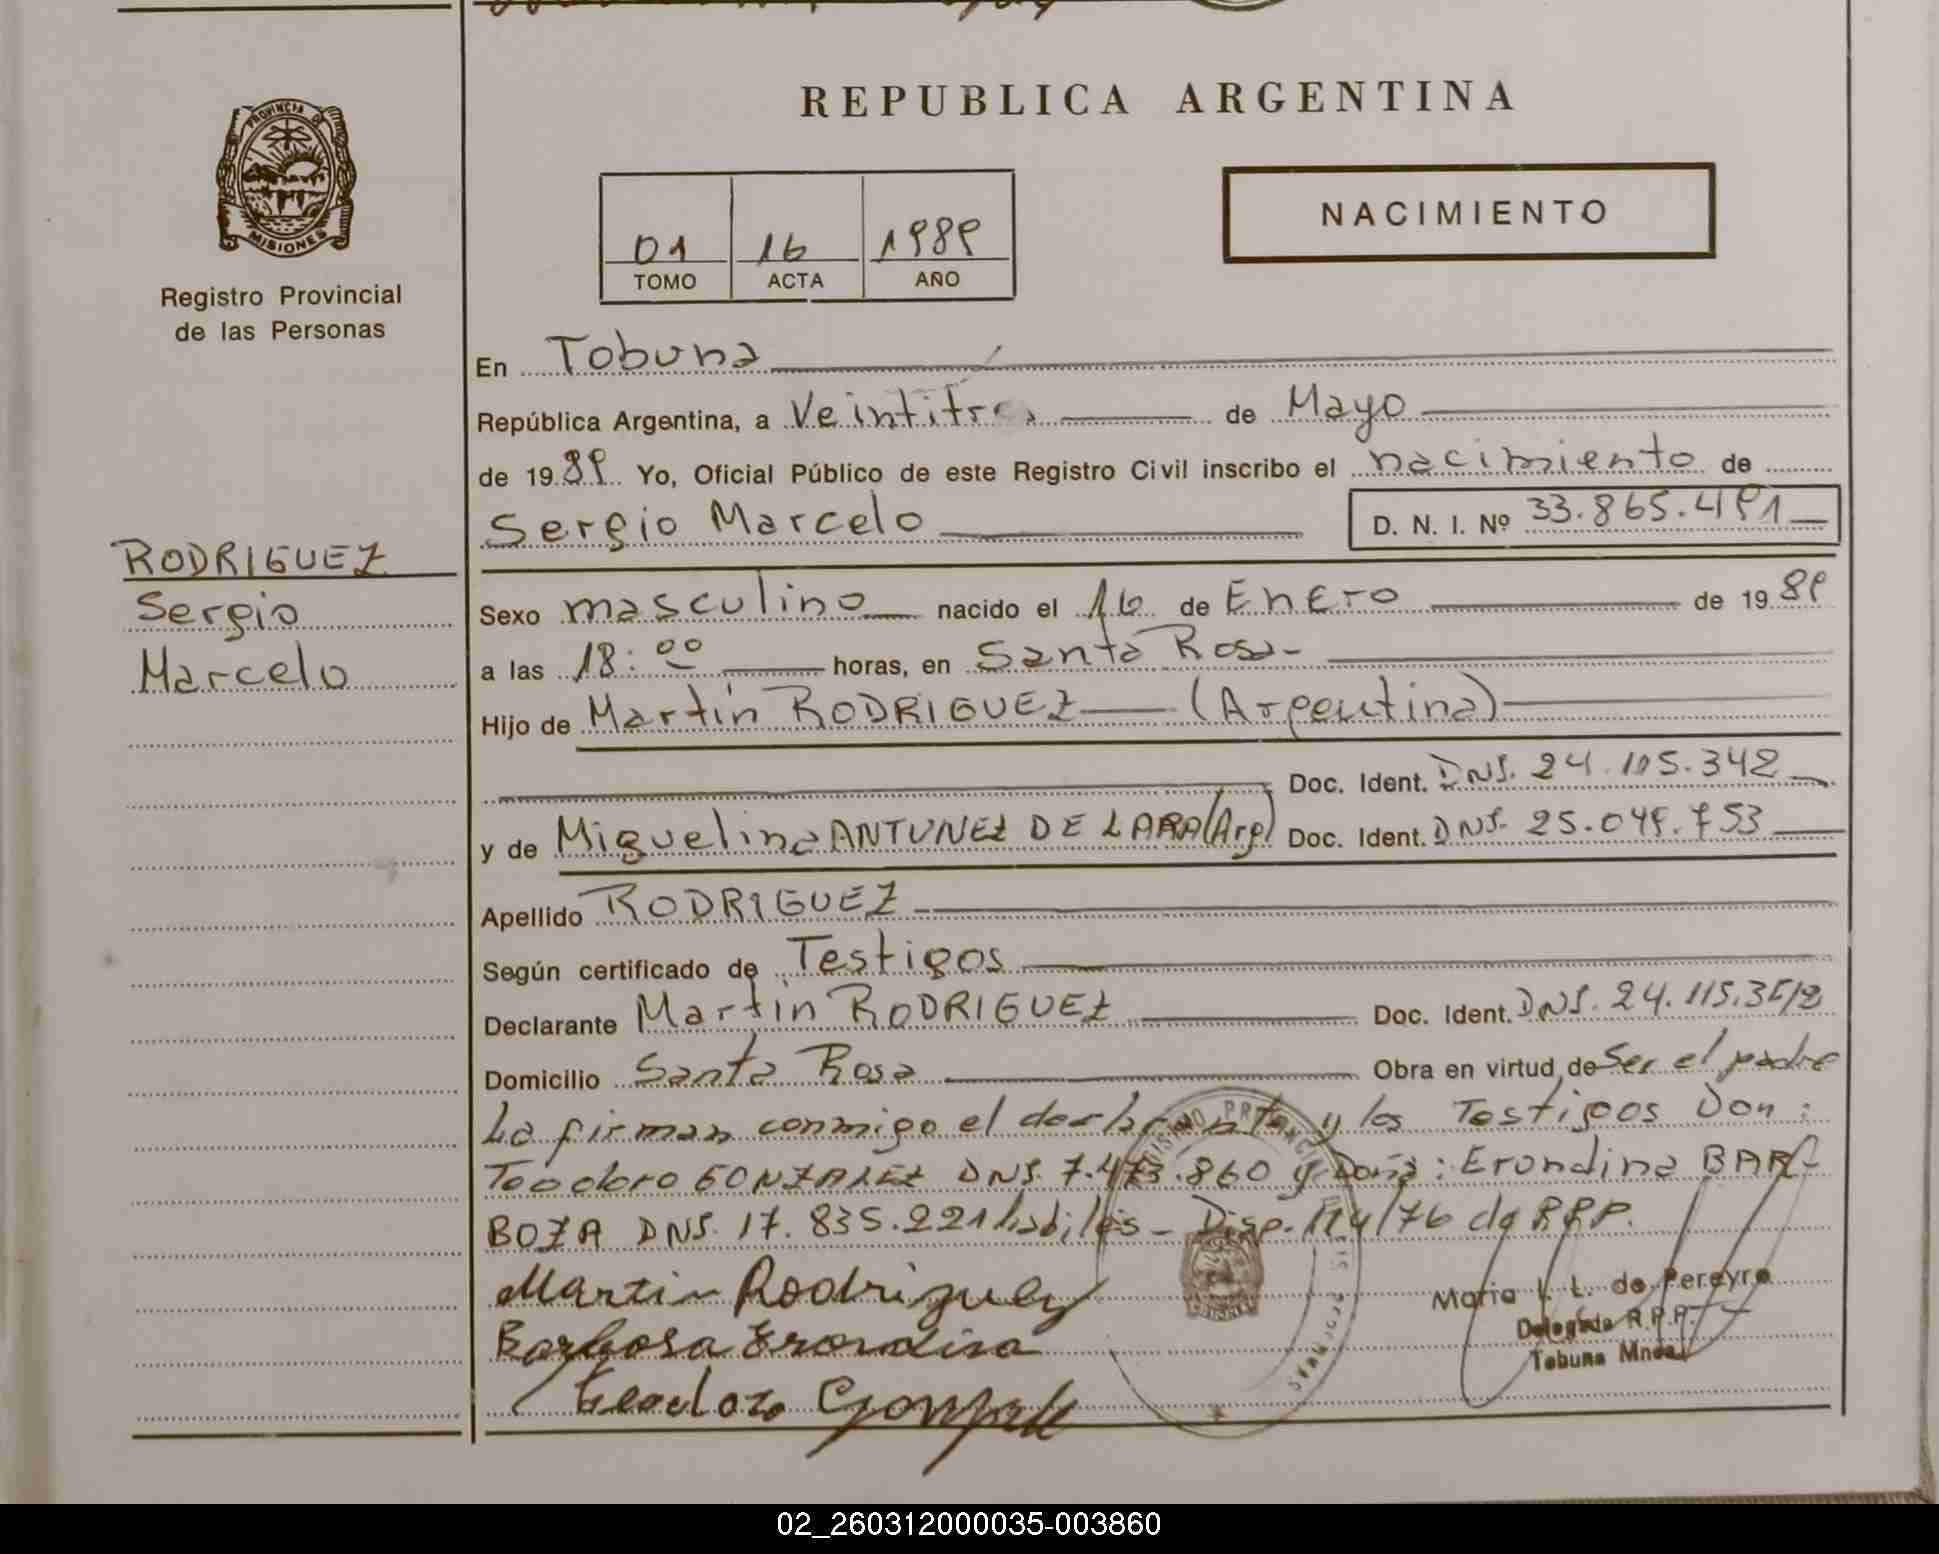 REPUBLICA ARGENTINA
PROVINCIA DE
MISIONES
Registro Provincial
de las Personas
01 16 1989
TOMO ACTA AÑO
NACIMIENTO
En Tobuna
República Argentina, a Veintitres de Mayo
de 1989 Yo, Oficial Público de este Registro Civil inscribo el nacimiento de
Sergio Marcelo D. N. I. Nº 33.865.491
RODRIGUEZ
Sergio
Marcelo
Sexo masculino nacido el 16 de Enero de 1989
a las 18:00 horas, en Santa Rosa-
Hijo de Martín RODRIGUEZ (Argentina)
Doc. Ident. DNI. 24.115.342
y de Miguelina ANTUNEZ DE LARA (Arg) Doc. Ident. DNI. 25.049.753
Apellido RODRIGUEZ
Según certificado de Testigos
Declarante Martín RODRIGUEZ Doc. Ident. DNI. 24.115.342
Domicilio Santa Rosa Obra en virtud de Ser el padre
La firman conmigo el declarante y los Testigos Don:
Teodoro GONZALEZ DNI. 7.473.860 y Doña: Erondina BAR-
BOZA DNI. 17.835.221 habiles - Disp. 114/76 de RPP.
Martin Rodriguez
Barbosa Erondina
Teodoro
Maria I. L. de Pereyra
Delegada R.P.P.
Tobuna Mnes.
02_260312000035-003860